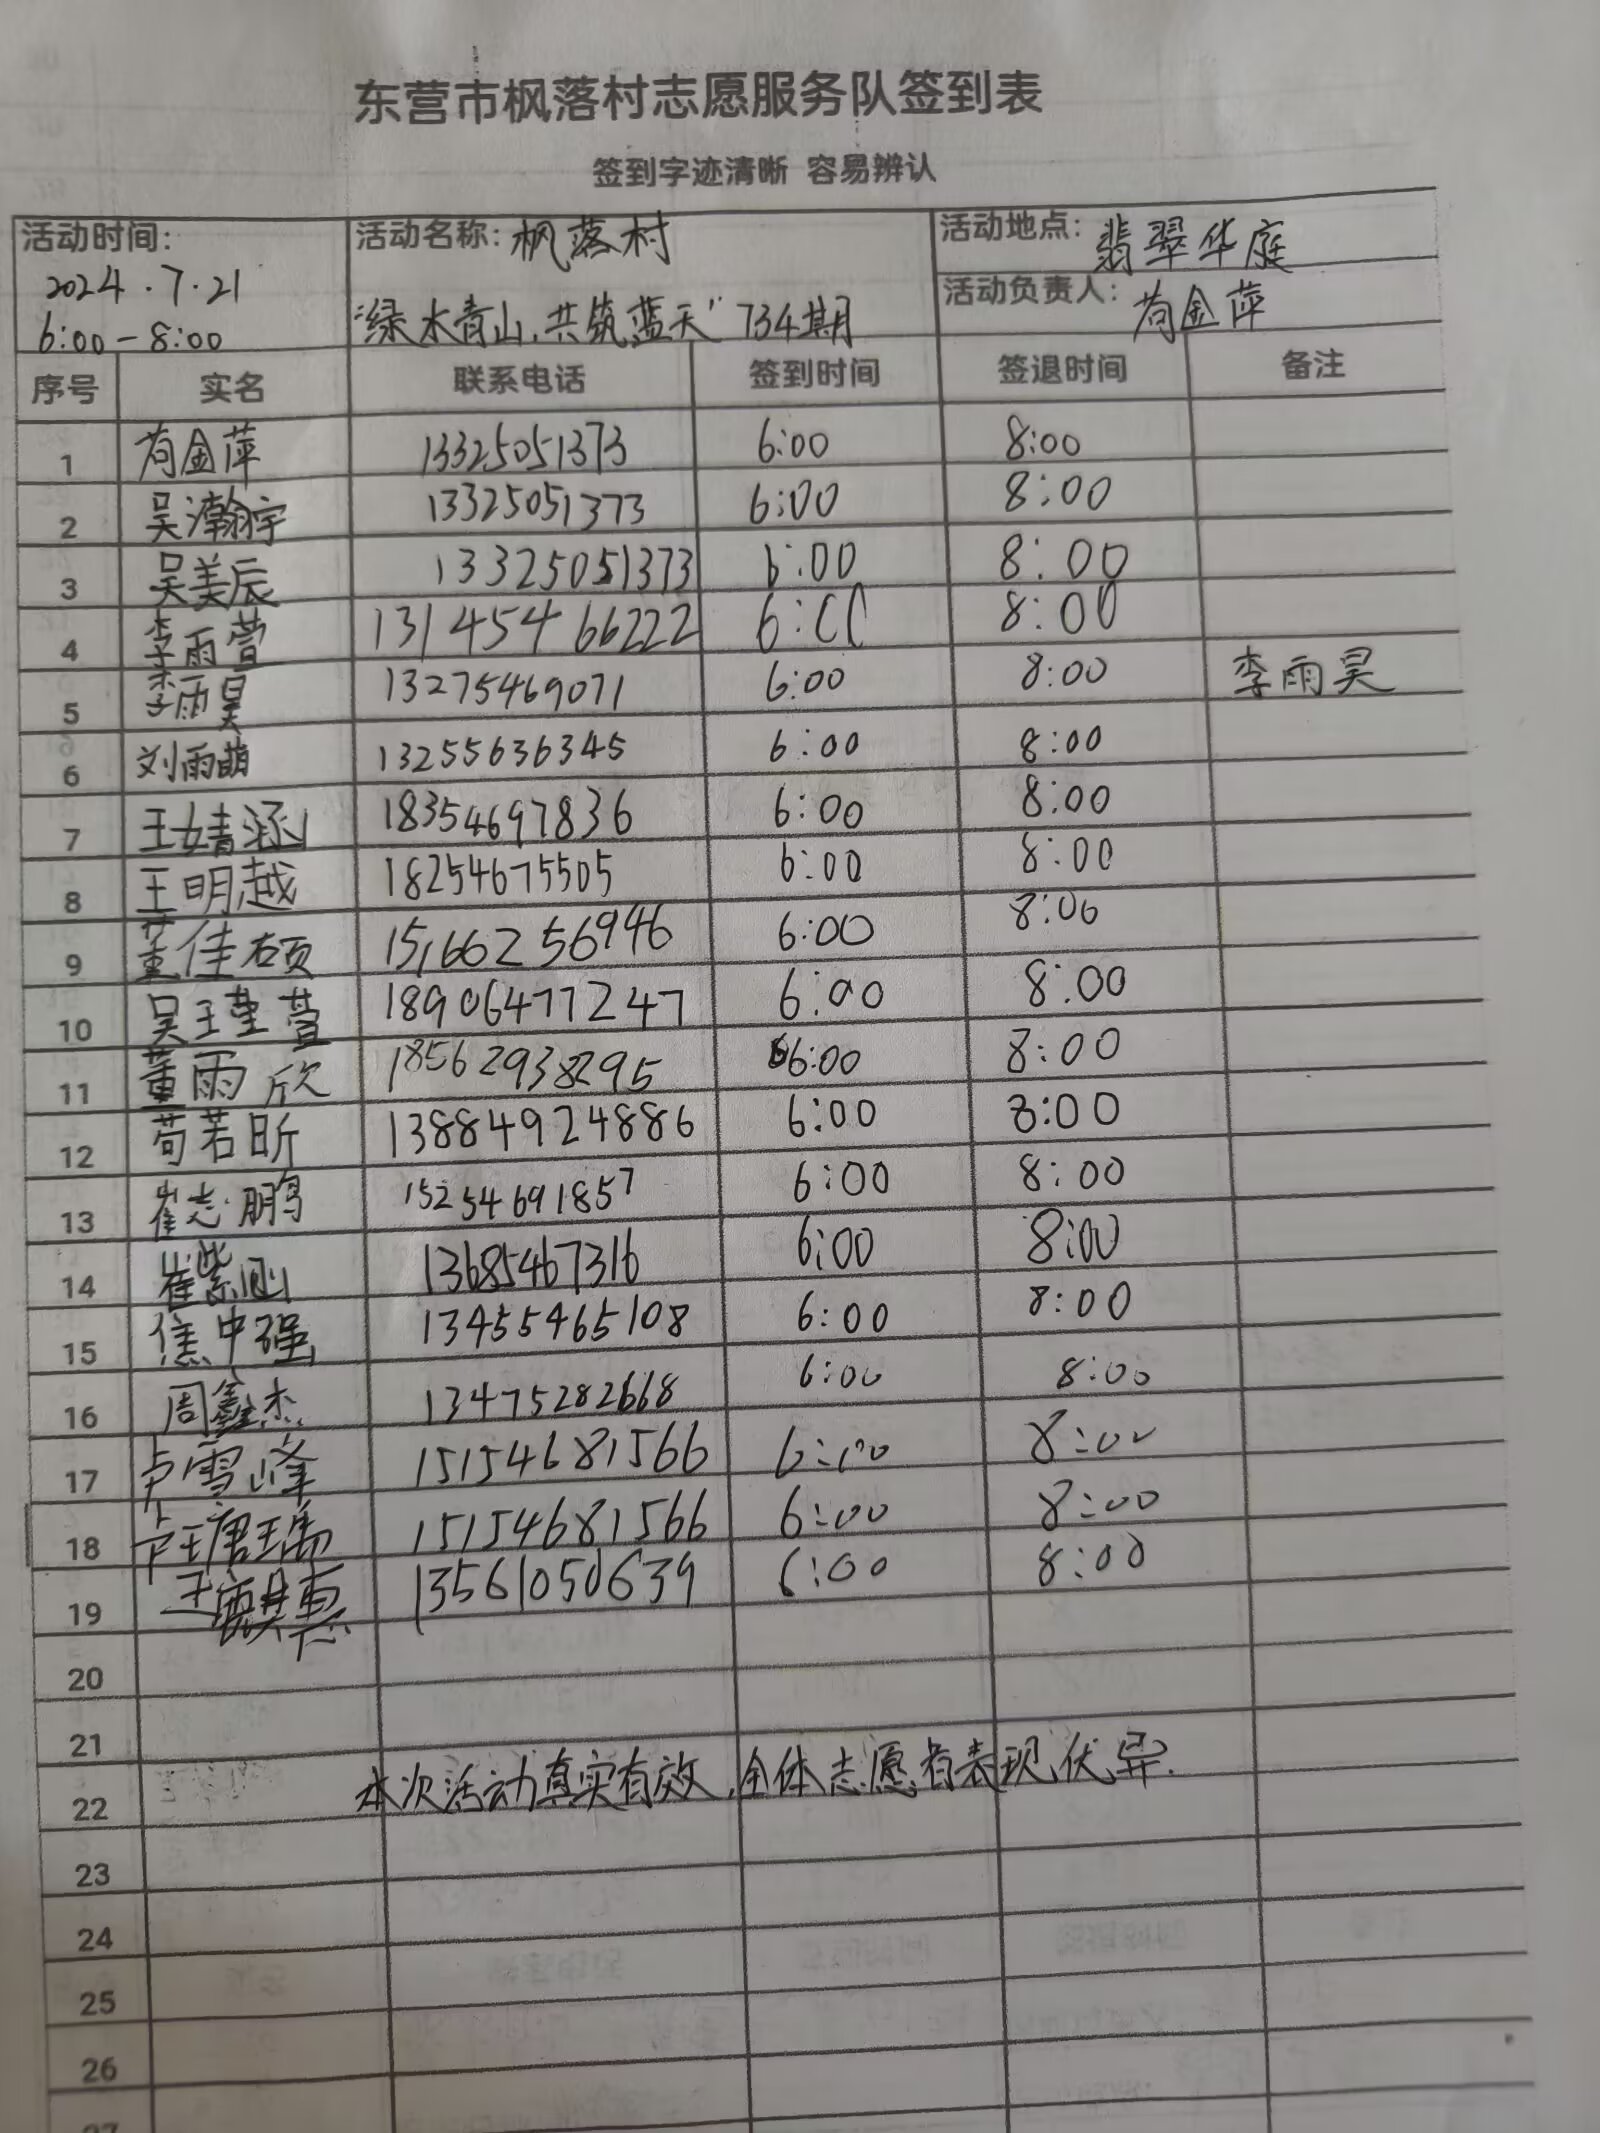 东营市枫落村志愿服务队签到表
签到字迹清晰 容易辨认
活动时间: 2024.7.21 6:00-8:00
活动名称: 枫落村 "绿水青山,共筑蓝天" 734期
活动地点: 翡翠华庭
活动负责人: 苟金萍
序号 实名 联系电话 签到时间 签退时间 备注
1 苟金萍 13325051373 6:00 8:00
2 吴瀚宇 13325051373 6:00 8:00
3 吴美辰 13325051373 6:00 8:00
4 李雨萱 131454 66222 6:00 8:00
5 李雨昊 13275469071 6:00 8:00 李雨昊
6 刘雨萌 13255636345 6:00 8:00
7 王婧涵 18354697836 6:00 8:00
8 王明越 18254675505 6:00 8:00
9 董佳硕 15166256946 6:00 8:00
10 吴瑾萱 18906477247 6:00 8:00
11 董雨欣 18562938295 6:00 8:00
12 苟若昕 13884924886 6:00 8:00
13 崔志鹏 15254691857 6:00 8:00
14 崔紫涵 13685467316 6:00 8:00
15 焦中强 13455465108 6:00 8:00
16 周鑫杰 13475282668 6:00 8:00
17 卢雪峰 15154681566 6:00 8:00
18 15154681566 6:00 8:00
19 王麒惠 13561050639 6:00 8:00
20
21
22 本次活动真实有效,全体志愿者表现优异.
23
24
25
26
27